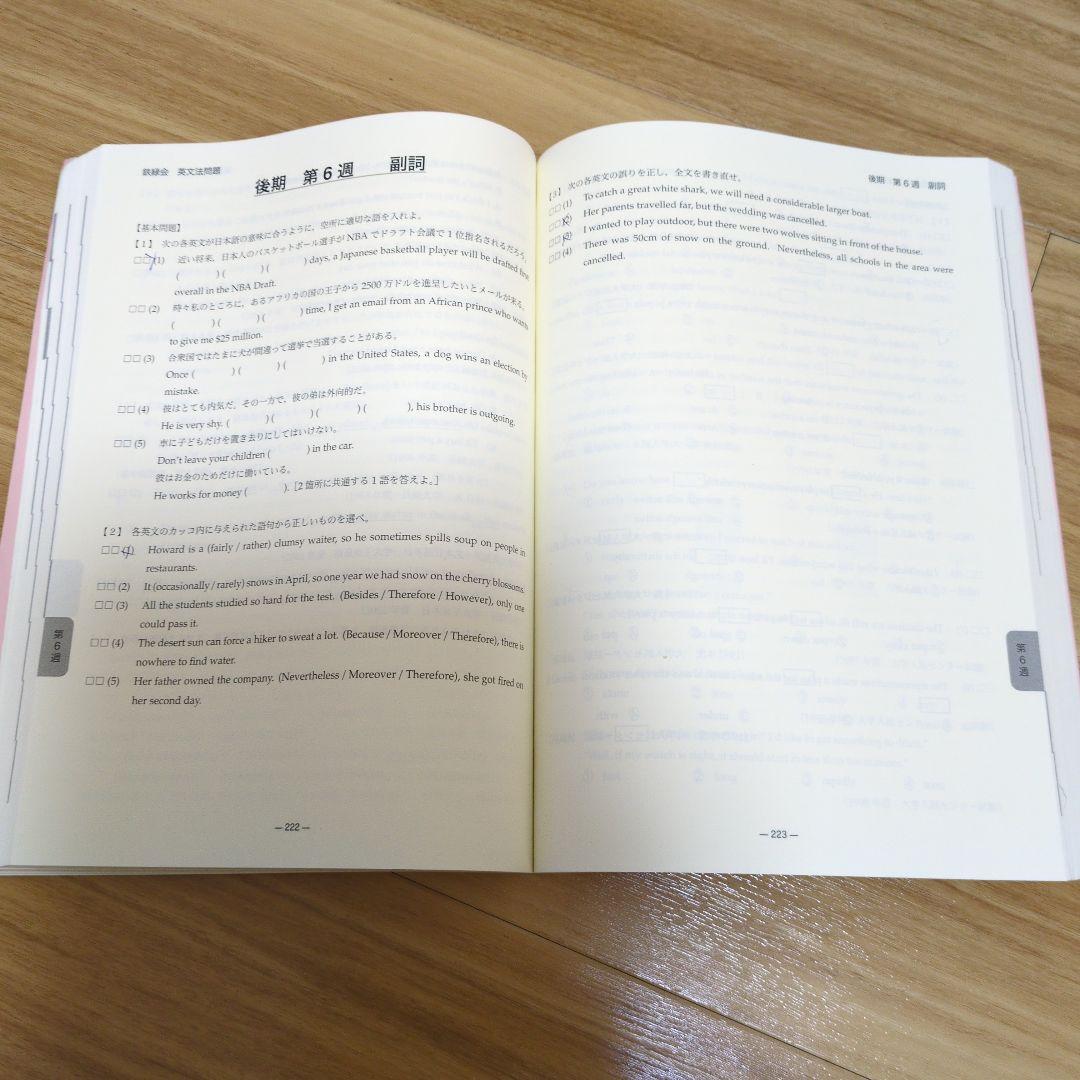 鉄緑会 英文法問題
後期 第6週 副詞
【基本問題】
【1】 次の各英文が日本語の意味に合うように、空所に適切な語を入れよ。
□□(1) 近い将来、日本人のバスケットボール選手がNBAでドラフト会議で1位指名されるだろう。
( ) ( ) ( ) days, a Japanese basketball player will be drafted first
overall in the NBA Draft.
□□(2) 時々私のところに、あるアフリカの国の王子から2500万ドルを進呈したいとメールが来る。
( ) ( ) ( ) time, I get an email from an African prince who wants
to give me $25 million.
□□(3) 合衆国ではたまに犬が間違って選挙で当選することがある。
Once ( ) ( ) ( ) in the United States, a dog wins an election by
mistake.
□□(4) 彼はとても内気だ。その一方で、彼の弟は外向的だ。
He is very shy. ( ) ( ) ( ) ( ), his brother is outgoing.
□□(5) 車に子どもだけを置き去りにしてはいけない。
Don't leave your children ( ) in the car.
彼はお金のためだけに働いている。
He works for money ( ). [2箇所に共通する1語を答えよ。]
【2】 各英文のカッコ内に与えられた語句から正しいものを選べ。
□□(1) Howard is a (fairly / rather) clumsy waiter, so he sometimes spills soup on people in
restaurants.
□□(2) It (occasionally / rarely) snows in April, so one year we had snow on the cherry blossoms.
□□(3) All the students studied so hard for the test. (Besides / Therefore / However), only one
could pass it.
□□(4) The desert sun can force a hiker to sweat a lot. (Because / Moreover / Therefore), there is
nowhere to find water.
□□(5) Her father owned the company. (Nevertheless / Moreover / Therefore), she got fired on
her second day.
第6週
— 222 —
後期 第6週 副詞
【3】 次の各英文の誤りを正し、全文を書き直せ。
□□(1) To catch a great white shark, we will need a considerable larger boat.
□□(2) Her parents travelled far, but the wedding was cancelled.
□□(3) I wanted to play outdoor, but there were two wolves sitting in front of the house.
□□(4) There was 50cm of snow on the ground. Nevertheless, all schools in the area were
cancelled.
第6週
— 223 —